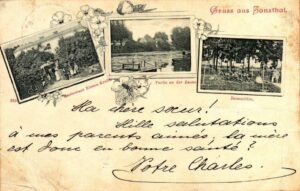 Gruss aus Jonsthal.
Partie an der Saane
Ma chère sœur!
Mille salutations
à mes parents aimés; la mère
est donc en bonne santé?
Votre Charles.